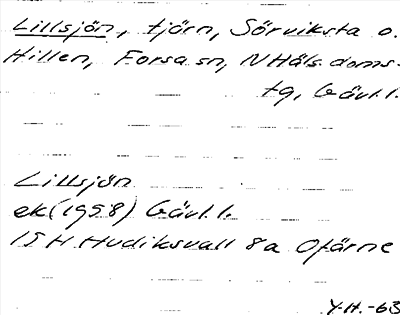 Lillsjön, tjärn, Sörviksta o.
Hillen, Forsa sn, N Häls. doms-
tg, Gävl.l.
Lillsjön
ek (1958) Gävl.l.
15 H Hudiksvall 8a Ofärne
Y.H.-63